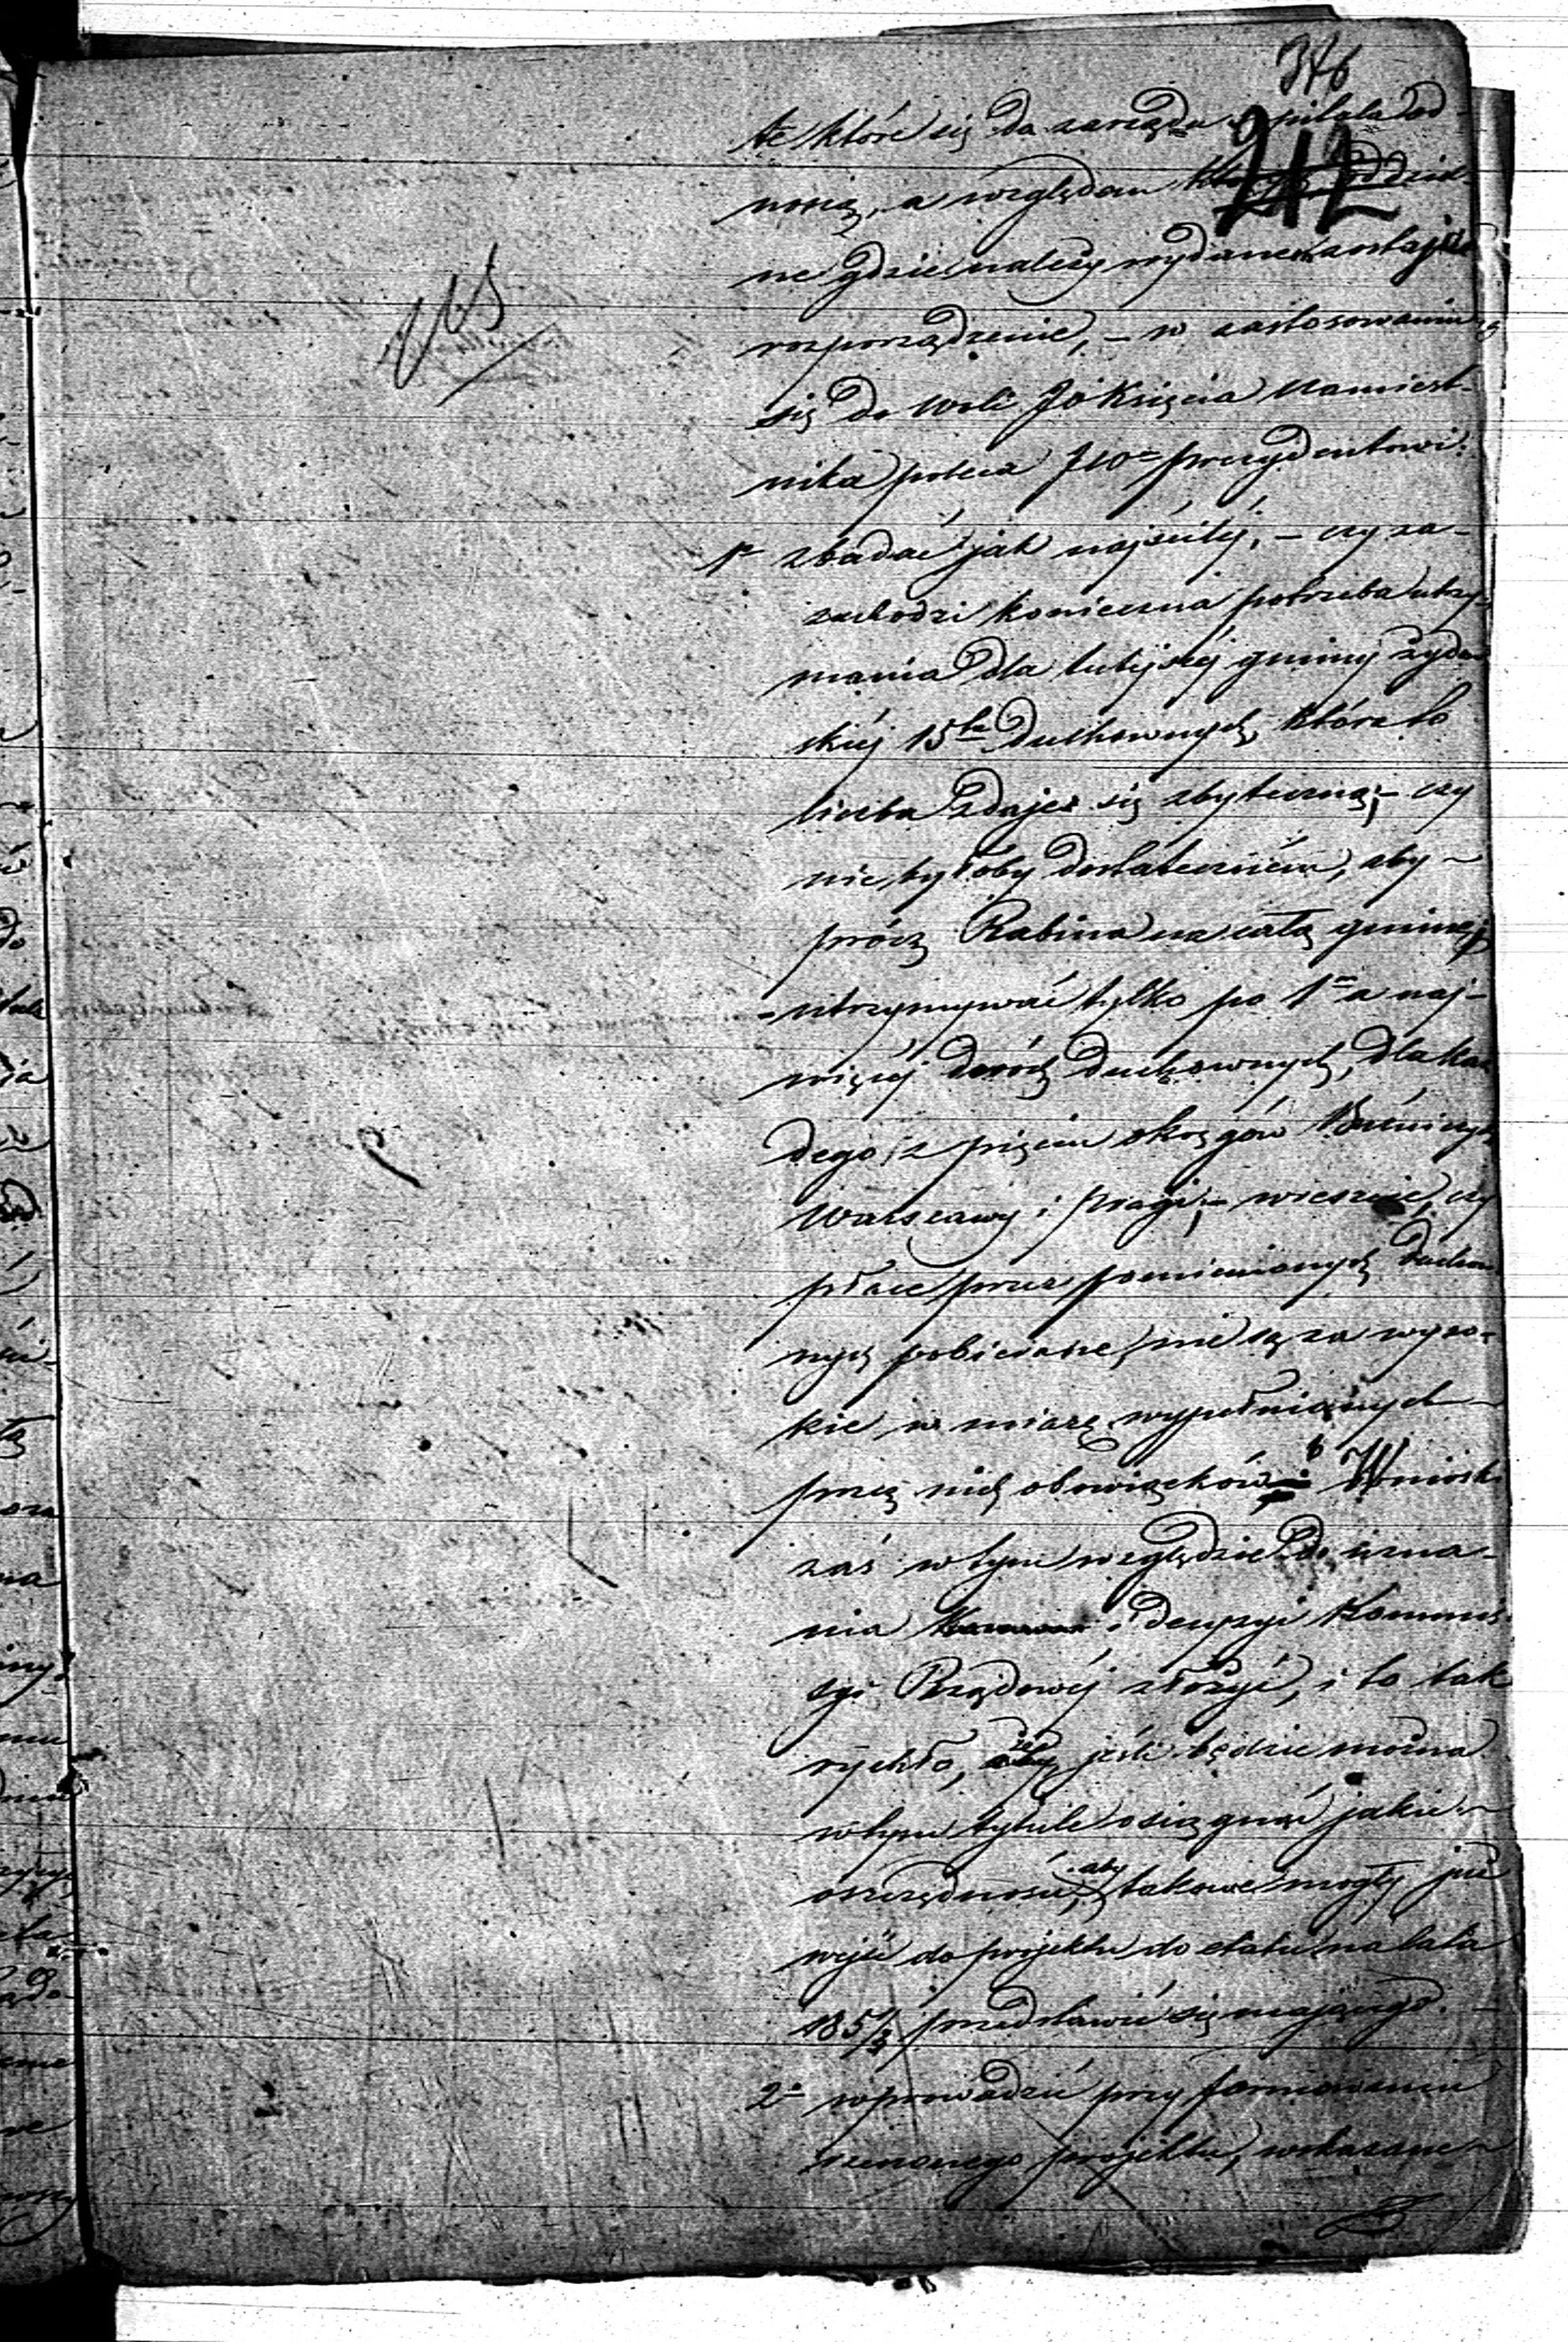 346
212
te które się do zarządu szpitala od-
noszą, a względem których oddziel-
ne gdzie należy wydane zostaje
rozporządzenie, – w zastosowaniu
się do woli JO Księcia Namiest-
nika poleca JWu prezydentowi:
1° zbadać jak najściśléj, – czy za-
zachodzi konieczna potrzeba utrzy-
mania dla tutejszéj gminy żydow
skiéj 15tu duchownych, która to
liczba zdaje się zbyteczną; – czy
nie byłoby dostateczném, aby
prócz Rabina na całą gminę
utrzymywać tylko po 1m a naj-
więcéj dwóch duchownych, dla każ
dego z pięciu okręgów Bóźniczych
Warszawy i pragi; – wreszcie, czy
płace przez pomienionych ducho
nych pobierane, nie są za wyso-
kie w miarę wypełnianych
przez nich obowiązków. Wnioski
zaś w tym względzie do uzna-
nia i decyzyi Kommis
syi Rządowéj złożyć, i to tak
rychło, że jeśli będzie można
w tym tytule osiągnąć jakie
oszczędności, aby takowe mogły już
wejść do projektu do etatu na lata
185 1/3 przedstawić się mającego. –
2° wprowadzić przy formowaniu
rzeczonego projektu, wskazane